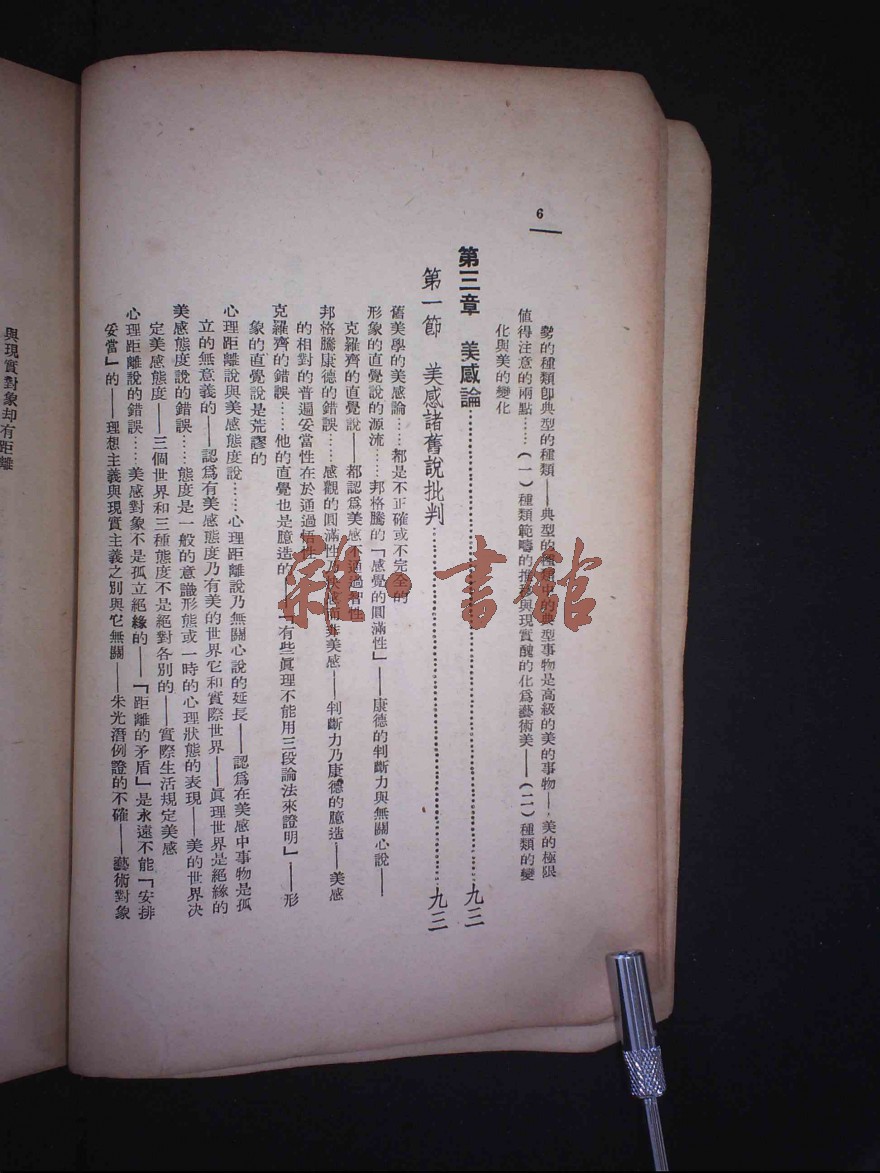 6
勢的種類卽典型的種類——典型的種類中的典型事物是高級的美的事物——美的極限
值得注意的兩點……(一)種類範疇的推移與現實醜的化爲藝術美——(二)種類的變
化與美的變化
第三章 美感論……九三
第一節 美感諸舊說批判……九三
舊美學的美感論……都是不正確或不完全的
形象的直覺說的源流……邦格騰的「感覺的圓滿性」——康德的判斷力與無關心說——
克羅齊的直覺說——都認爲美感不通過智性
邦格騰康德的錯誤……感觀的圓滿性乃快感而非美感——判斷力乃康德的臆造——美感
的相對的普遍妥當性在於通過悟性
克羅齊的錯誤……他的直覺也是臆造的——「有些眞理不能用三段論法來證明」——形
象的直覺說是荒謬的
心理距離說與美感態度說……心理距離說乃無關心說的延長——認爲在美感中事物是孤
立的無意義的——認爲有美感態度乃有美的世界它和實際世界——眞理世界是絕緣的
美感態度說的錯誤……態度是一般的意識形態或一時的心理狀態的表現——美的世界決
定美感態度——三個世界和三種態度不是絕對各別的——實際生活規定美感
心理距離說的錯誤……美感對象不是孤立絕緣的——「距離的矛盾」是永遠不能「安排
妥當」的——理想主義與現實主義之別與它無關——朱光潛例證的不確——藝術對象
與現實對象却有距離
雜·書館